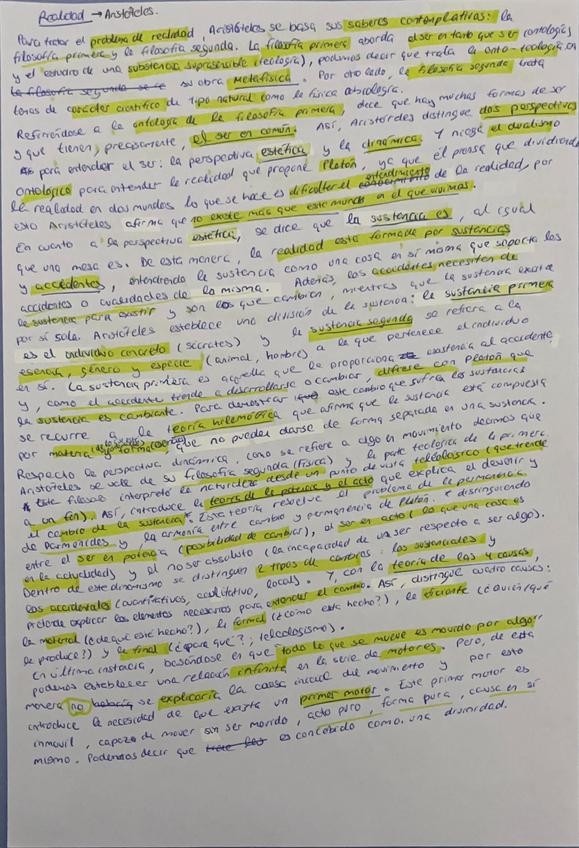 Realidad → Aristóteles.
Para tratar el problema de realidad, Aristóteles se basa sus saberes contemplativas: la
filosofía primera y la filosofía segunda. La filosofía primera aborda el ser en tanto que ser (ontología)
y el estudio de una substancia suprasensible (teología), podemos decir que trata la onto-teología en
la filosofía segunda se su obra Metafísica. Por otro lado, la filosofía segunda trata
temas de carácter científico de tipo natural como la física o biología.
Refiriéndose a la ontología de la filosofía primera, dice que hay muchas formas de ser
y que tienen, precisamente, el ser en común. Así, Aristóteles distingue dos perspectivas
para entender el ser: la perspectiva estética y la dinámica. Y niega el dualismo
ontológico para entender la realidad que propone Platón, ya que él piensa que dividiendo
la realidad en dos mundos lo que se hace es dificultar el entendimiento de la realidad, por
esto Aristóteles afirma que no existe más que este mundo en el que vivimos.
En cuanto a la perspectiva estética, se dice que la sustancia es, al igual
que una mesa es. De esta manera, la realidad está formada por sustancias
y accidentes, entendiendo la sustancia como una cosa en sí misma que soporta los
accidentes o cualidades de la misma. Además, los accidentes necesitan de
la sustancia para existir y son los que cambian, mientras que la sustancia existe
por sí sola. Aristóteles establece una división de la sustancia: la sustancia primera
es el individuo concreto (Sócrates) y la sustancia segunda se refiere a la
esencia, género y especie (animal, hombre) a la que pertenece el individuo
en sí. La sustancia primera es aquella que le proporciona existencia al accidente
y, como el accidente tiende a desarrollarse o cambiar, difiere con Platón que
la sustancia es cambiante. Para demostrar este cambio que sufren las sustancias
se recurre a la teoría hilemórfica que afirma que la sustancia está compuesta
por materia y forma, que no pueden darse de forma separada en una sustancia.
Respecto la perspectiva dinámica, como se refiere a algo en movimiento decimos que
Aristóteles se vale de su filosofía segunda (física) y la parte teológica de la primera.
Este filósofo interpretó la naturaleza desde un punto de vista teleológico (que tiende
a un fin). Así, introduce la teoría de la potencia y el acto que explica el devenir y
el cambio de la sustancia. Esta teoría resuelve el problema de la permanencia
de Parménides y la armonía entre cambio y permanencia de Platón, distinguiendo
entre el ser en potencia (posibilidad de cambiar), al ser en acto (lo que una cosa es
en la actualidad) y el no ser absoluto (la incapacidad de un ser respecto a ser algo).
Dentro de este dinamismo se distinguen 2 tipos de cambios: los sustanciales y
los accidentales (cuantitativos, cualitativo, local). Y, con la teoría de las 4 causas,
pretende explicar los elementos necesarios para entender el cambio. Así, distingue cuatro causas:
la material (¿de qué esté hecho?), la formal (¿cómo está hecho?), la eficiente (¿Quién/qué
le produce?) y la final (¿para qué?, teleologismo).
En última instancia, basándose en que "todo lo que se mueve es movido por algo"
podemos establecer una relación infinita en la serie de motores. Pero, de esta
manera no se explicaría la causa inicial del movimiento y por esto
introduce la necesidad de que exista un primer motor. Este primer motor es
inmóvil, capaz de mover sin ser movido, acto puro, forma pura, causa en sí
mismo. Podemos decir que es concebido como una divinidad.